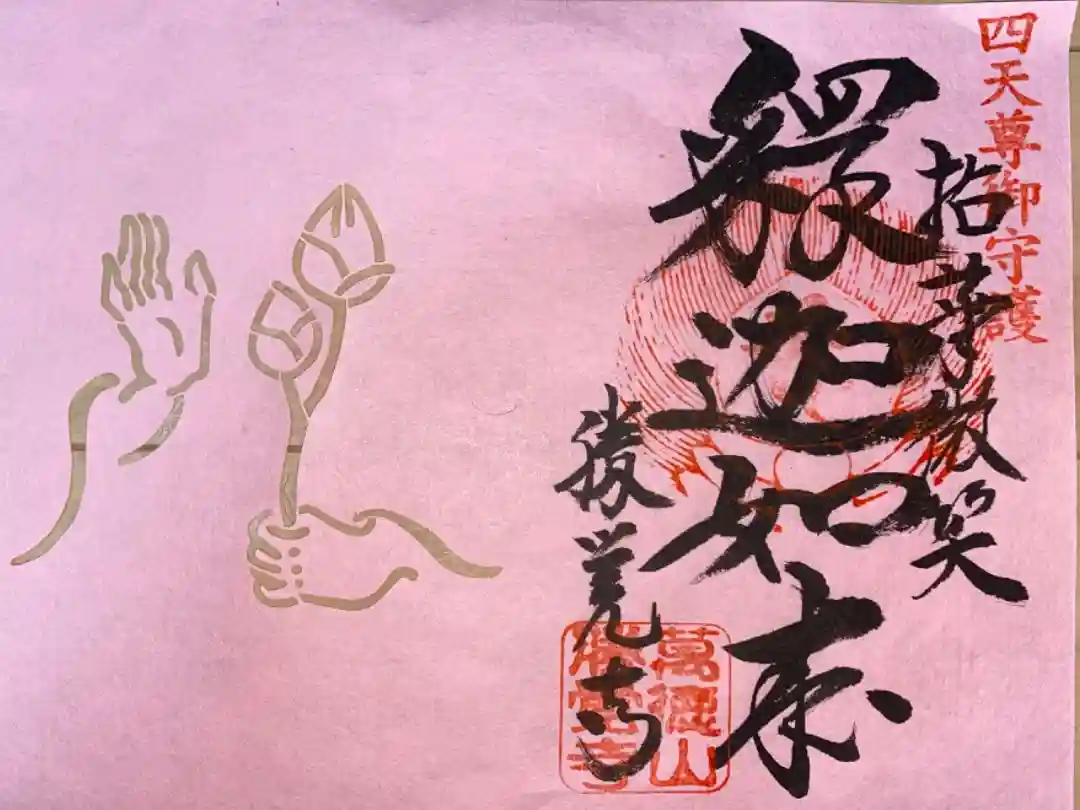 四天尊御守護
拈華微笑
釈迦如来
勝覚寺
萬徳山
勝覚寺